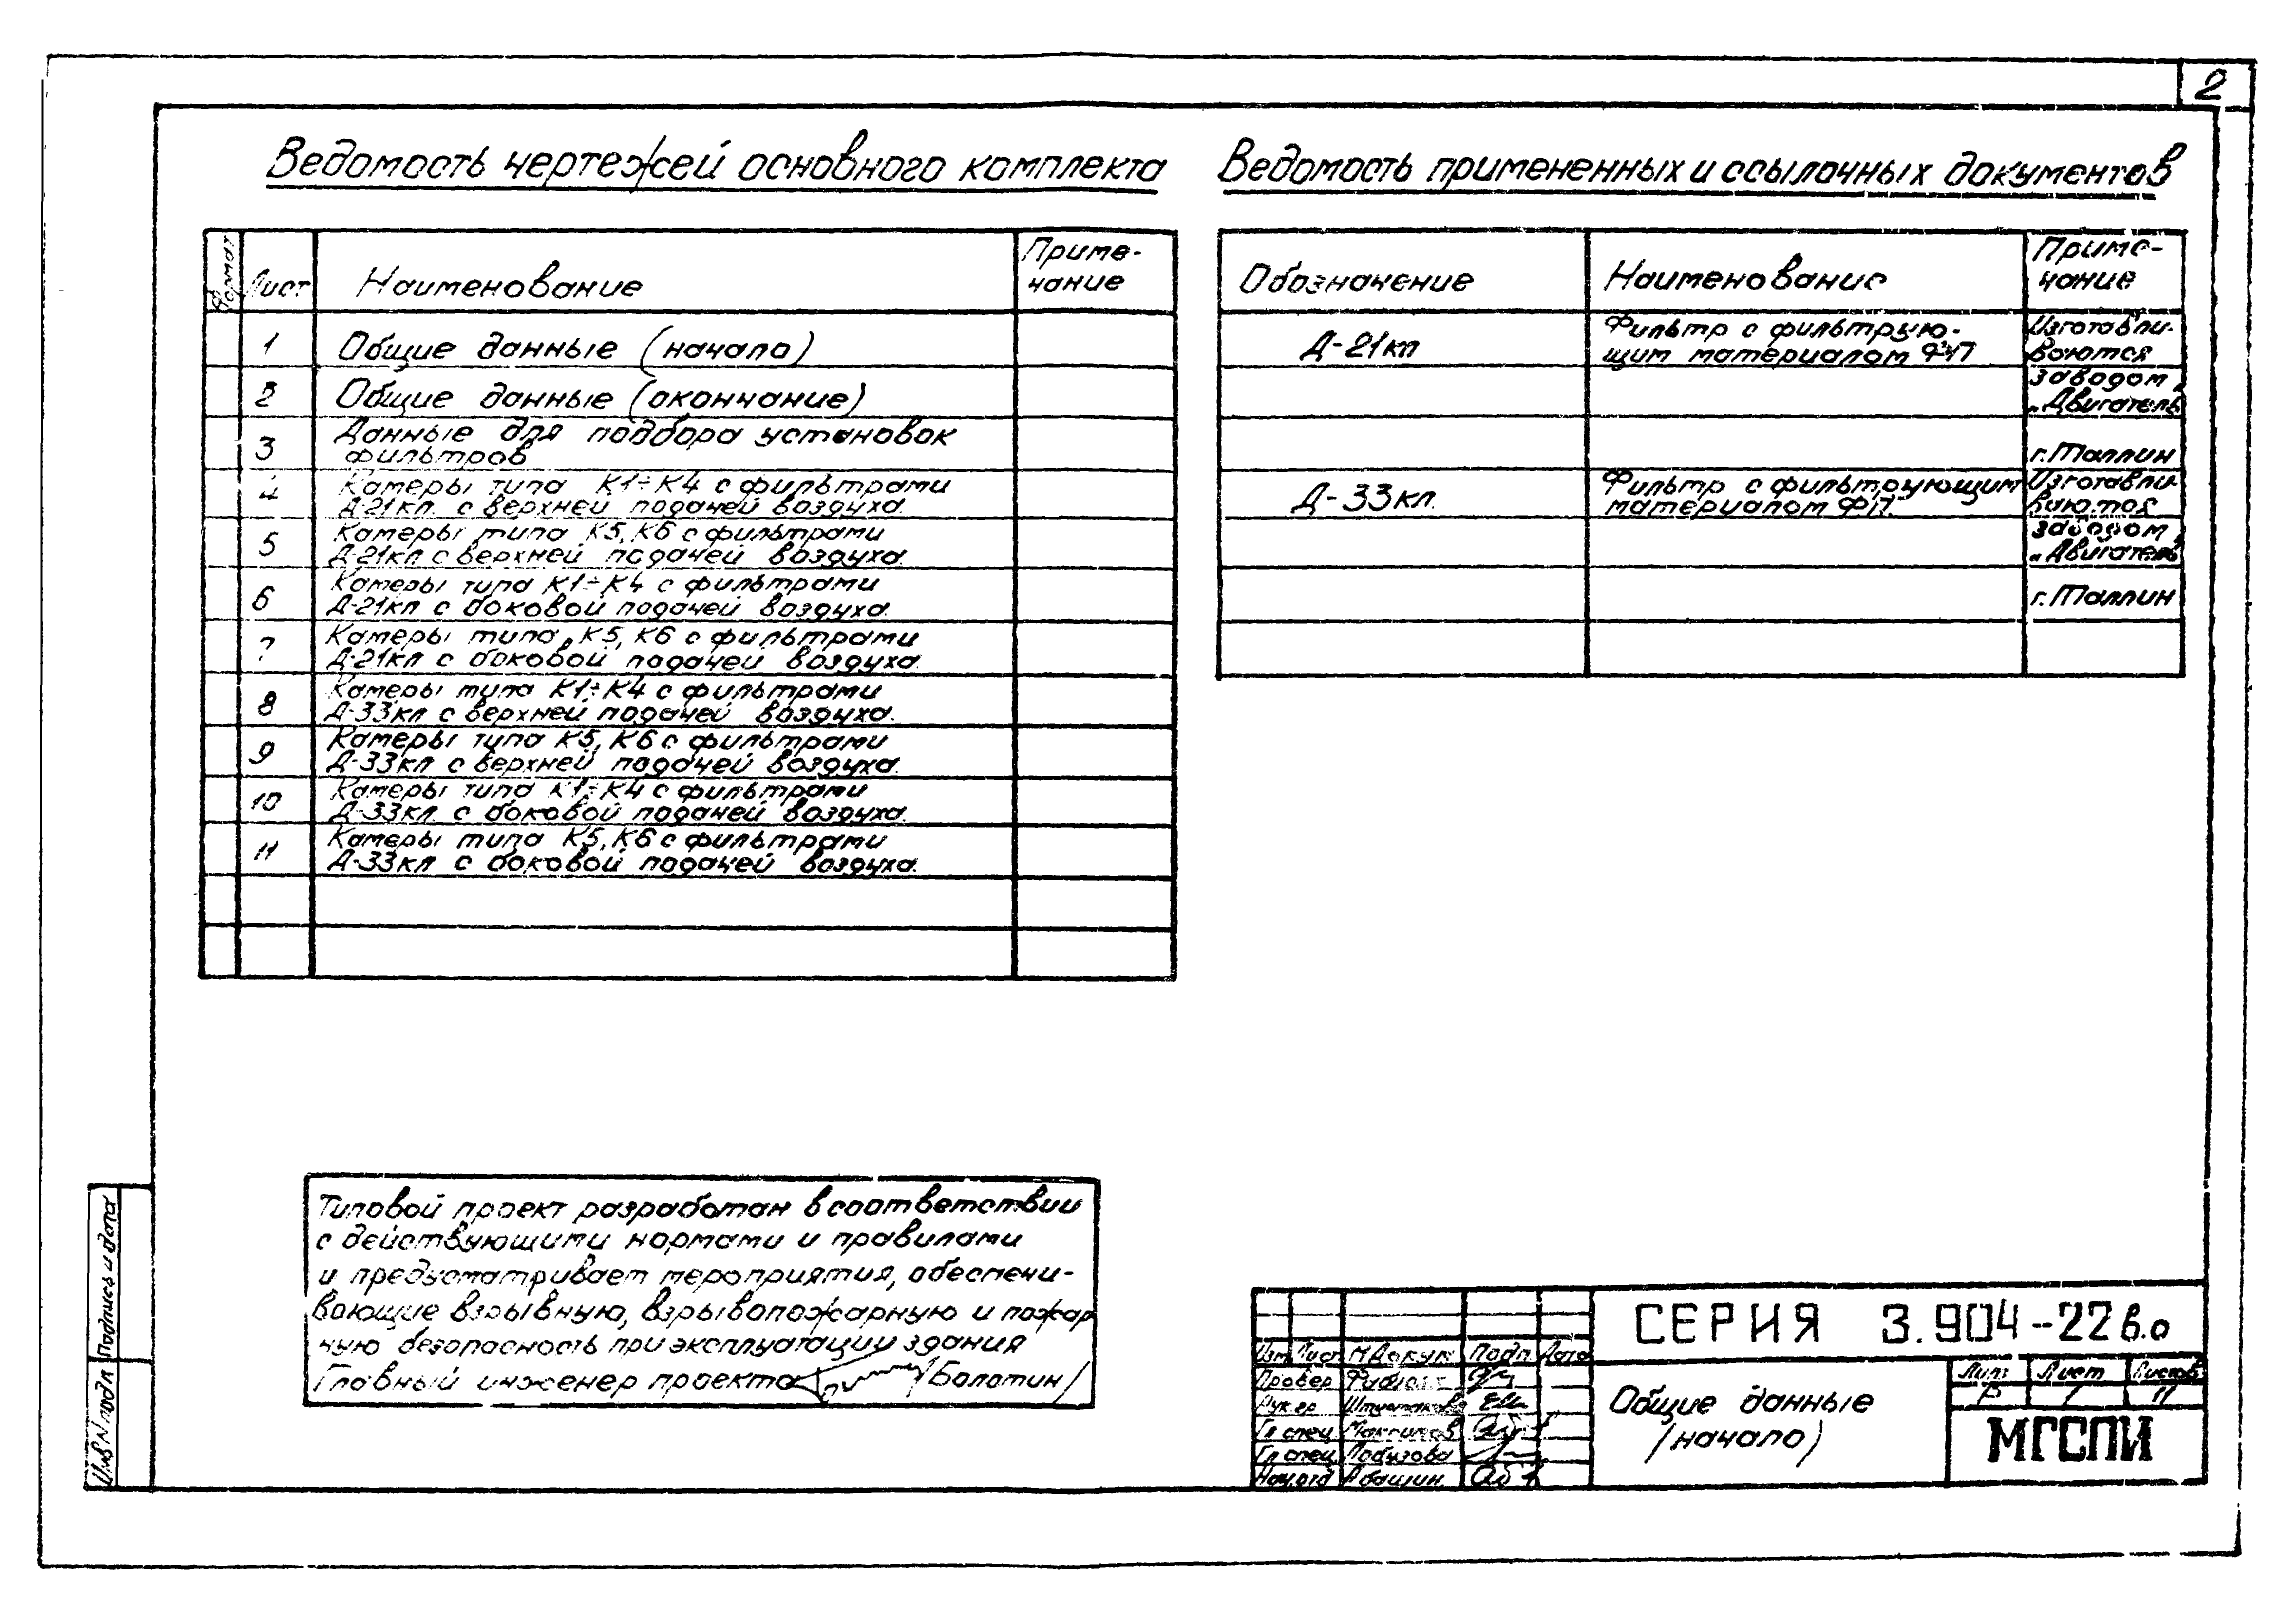 2
Ведомость чертежей основного комплекта
Формат
Лист
Наименование
Приме-
чание
1 Общие данные (начало)
2 Общие данные (окончание)
3 Данные для подбора установок
фильтров
4 Камеры типа К1÷К4 с фильтрами
Д-21кл. с верхней подачей воздуха.
5 Камеры типа К5, К6 с фильтрами
Д-21кл с верхней подачей воздуха.
6 Камеры типа К1÷К4 с фильтрами
Д-21кл с боковой подачей воздуха.
7 Камеры типа К5, К6 с фильтрами
Д-21кл с боковой подачей воздуха.
8 Камеры типа К1÷К4 с фильтрами
Д-33кл с верхней подачей воздуха.
9 Камеры типа К5, К6 с фильтрами
Д-33кл с верхней подачей воздуха.
10 Камеры типа К1÷К4 с фильтрами
Д-33кл. с боковой подачей воздуха.
11 Камеры типа К5, К6 с фильтрами
Д-33кл с боковой подачей воздуха.
Ведомость примененных и ссылочных документов
Обозначение
Наименование
Приме-
чание
Д-21кл
Фильтр с фильтрую-
щим материалом ФП
Изготавли-
ваются
заводом
„Двигатель"
г. Таллин
Д-33кл.
Фильтр с фильтрующим
материалом ФП.
Изготавли-
ваются
заводом
„Двигатель"
г. Таллин
Типовой проект разработан в соответствии
с действующими нормами и правилами
и предусматривает мероприятия, обеспечи-
вающие взрывную, взрывопожарную и пожар
ную безопасность при эксплуатации здания
Главный инженер проекта /Болотин/
Подпись и дата
Инв N подл
СЕРИЯ 3.904-22 в.0
Изм Лист N Докум Подп Дата
Провер
Рук.гр
Гл спец Максимов
Гл спец Лобузова
Нач.отд Абашин.
Общие данные
/начало)
Лит Лист Листов
Р 1 11
МГСПИ